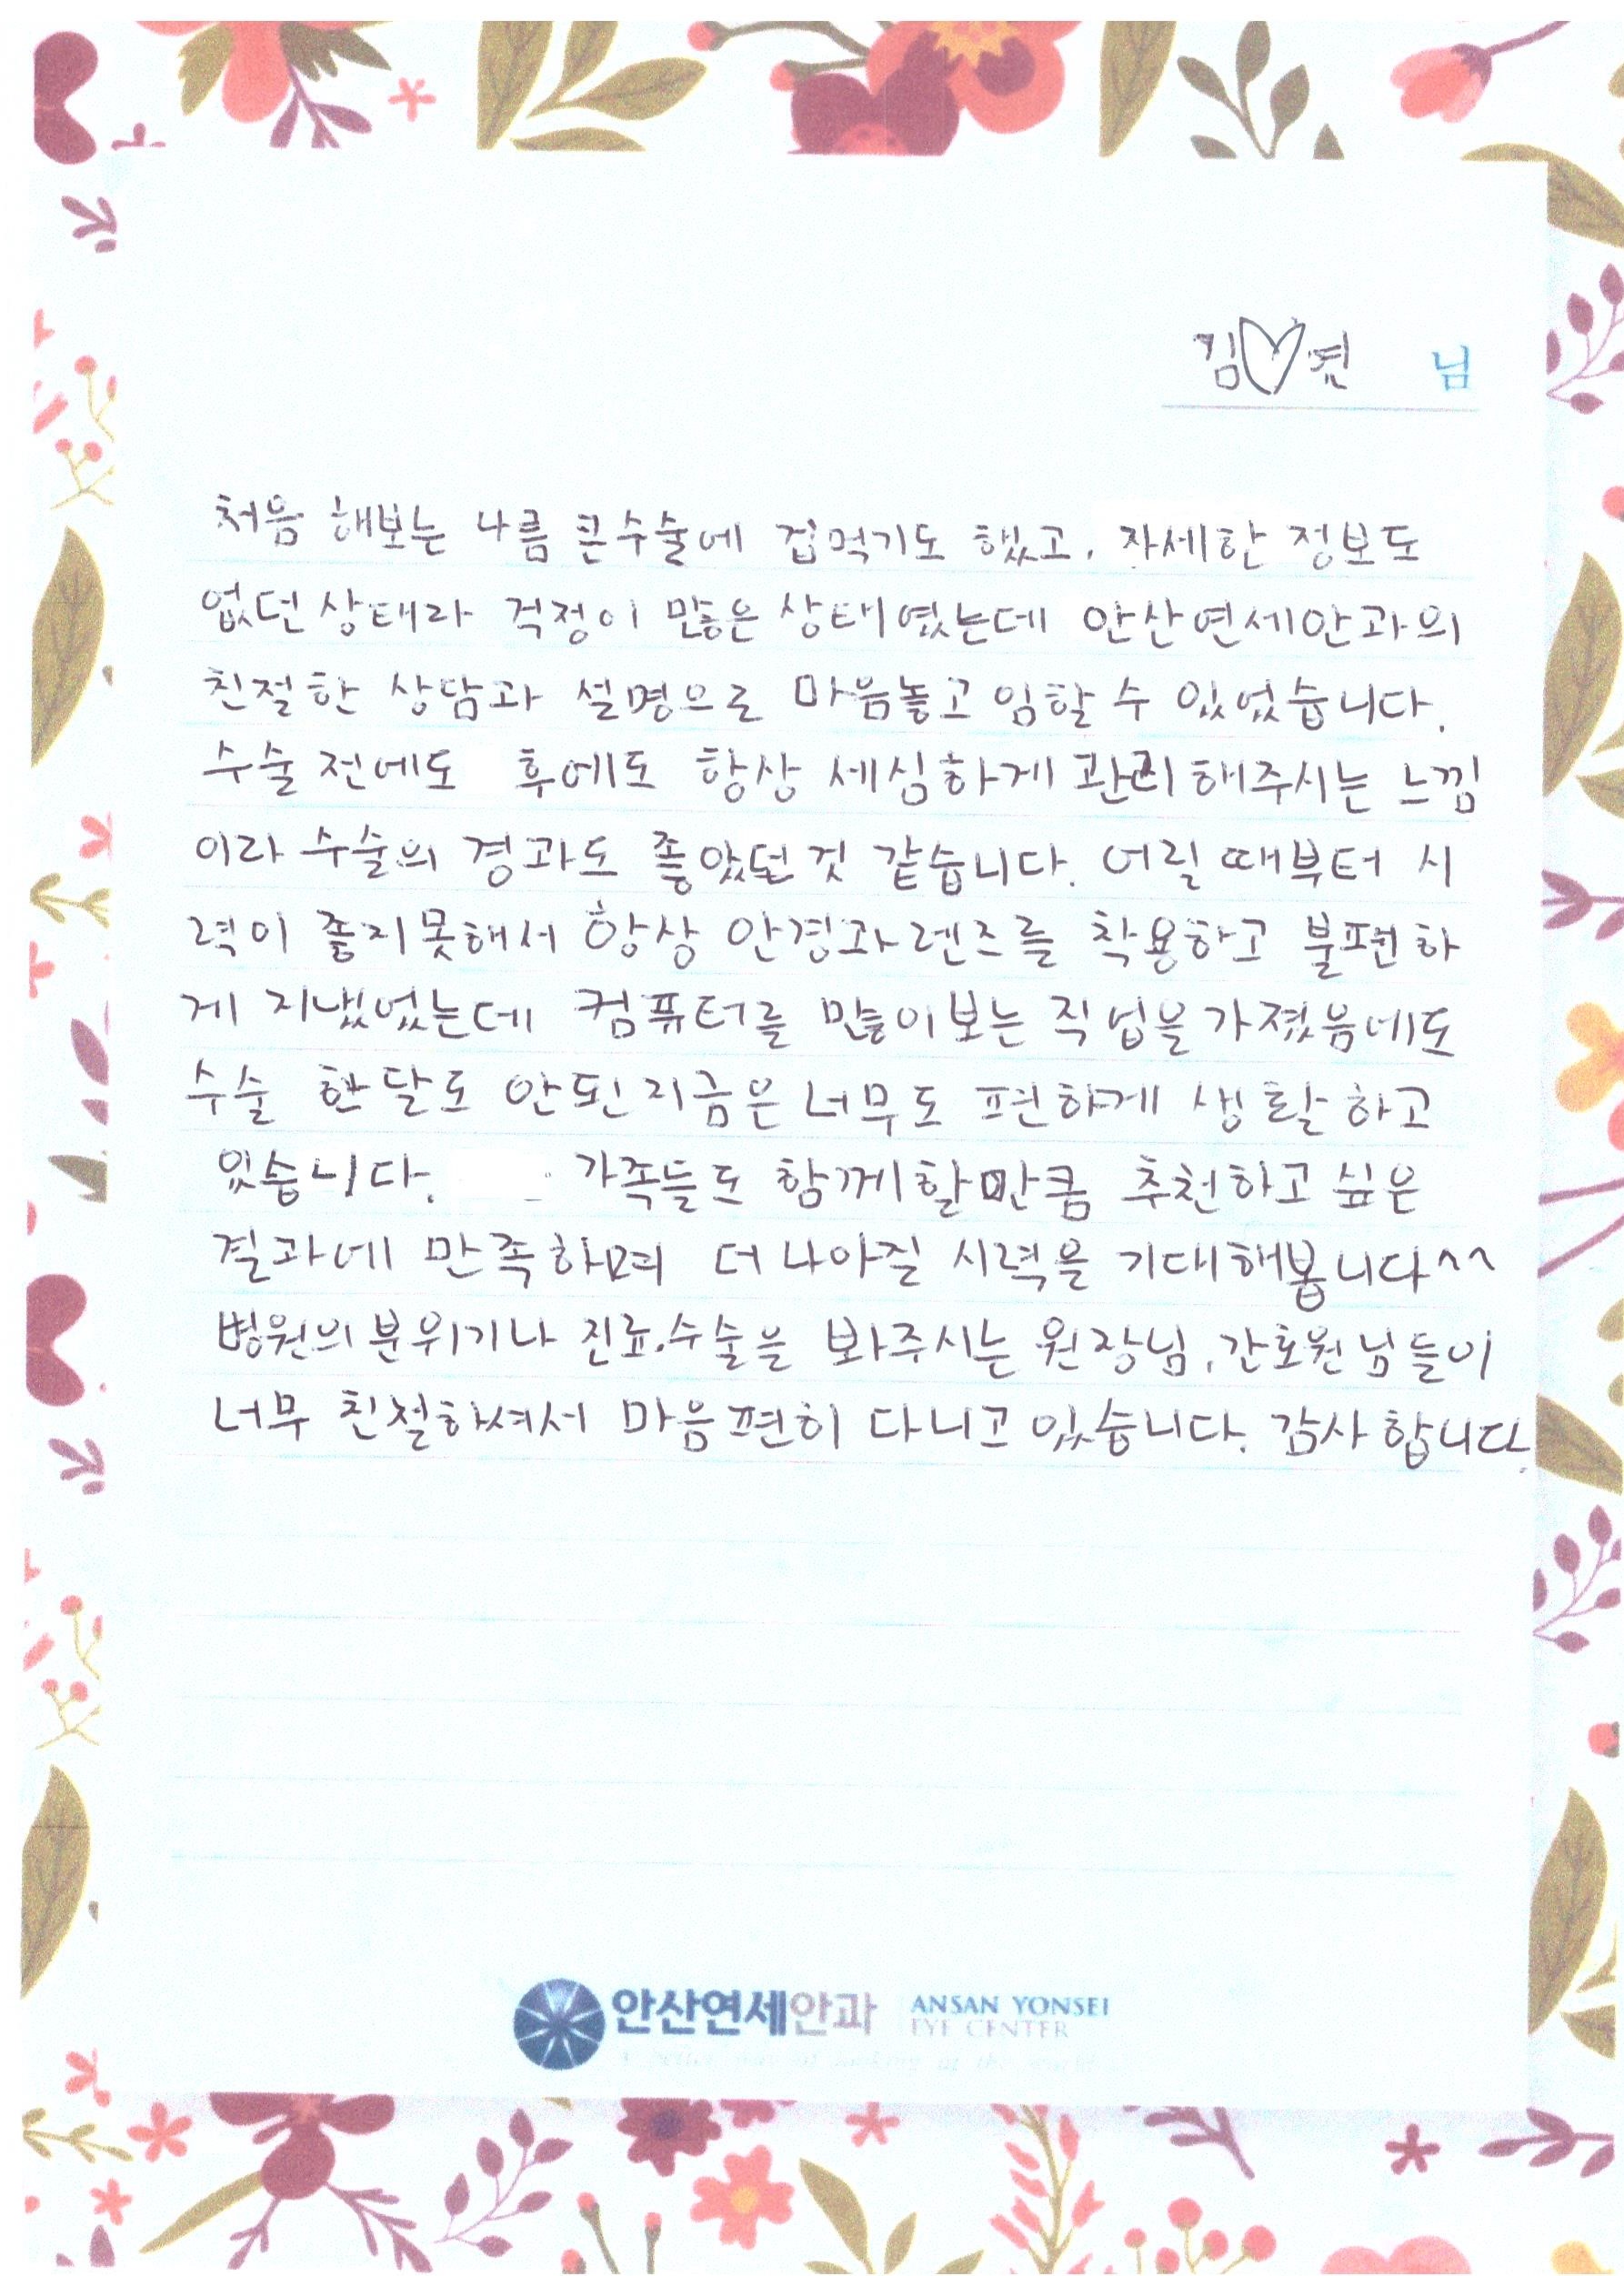 김♡연 님
처음 해보는 나름 큰수술에 겁먹기도 했고, 자세한 정보도
없던 상태라 걱정이 많은 상태였는데 안산연세안과의
친절한 상담과 설명으로 마음놓고 임할 수 있었습니다.
수술 전에도 후에도 항상 세심하게 관리해주시는 느낌
이라 수술의 경과도 좋았던것 같습니다. 어릴 때부터 시
력이 좋지못해서 항상 안경과 렌즈를 착용하고 불편하
게 지냈었는데 컴퓨터를 많이보는 직업을 가졌음에도
수술 한달도 안된 지금은 너무도 편하게 생활하고
있습니다. 가족들도 함께할만큼 추천하고 싶은
결과에 만족하며 더 나아질 시력을 기대해봅니다^^
병원의 분위기나 진료.수술을 봐주시는 원장님, 간호원님들이
너무 친절하셔서 마음편히 다니고 있습니다. 감사합니다.
안산연세안과 ANSAN YONSEI
EYE CENTER